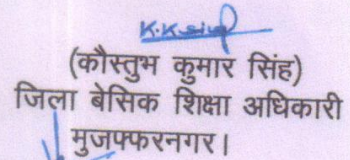 K.K Singh
(कौस्तुभ कुमार सिंह)
जिला बेसिक शिक्षा अधिकारी
मुजफ्फरनगर।